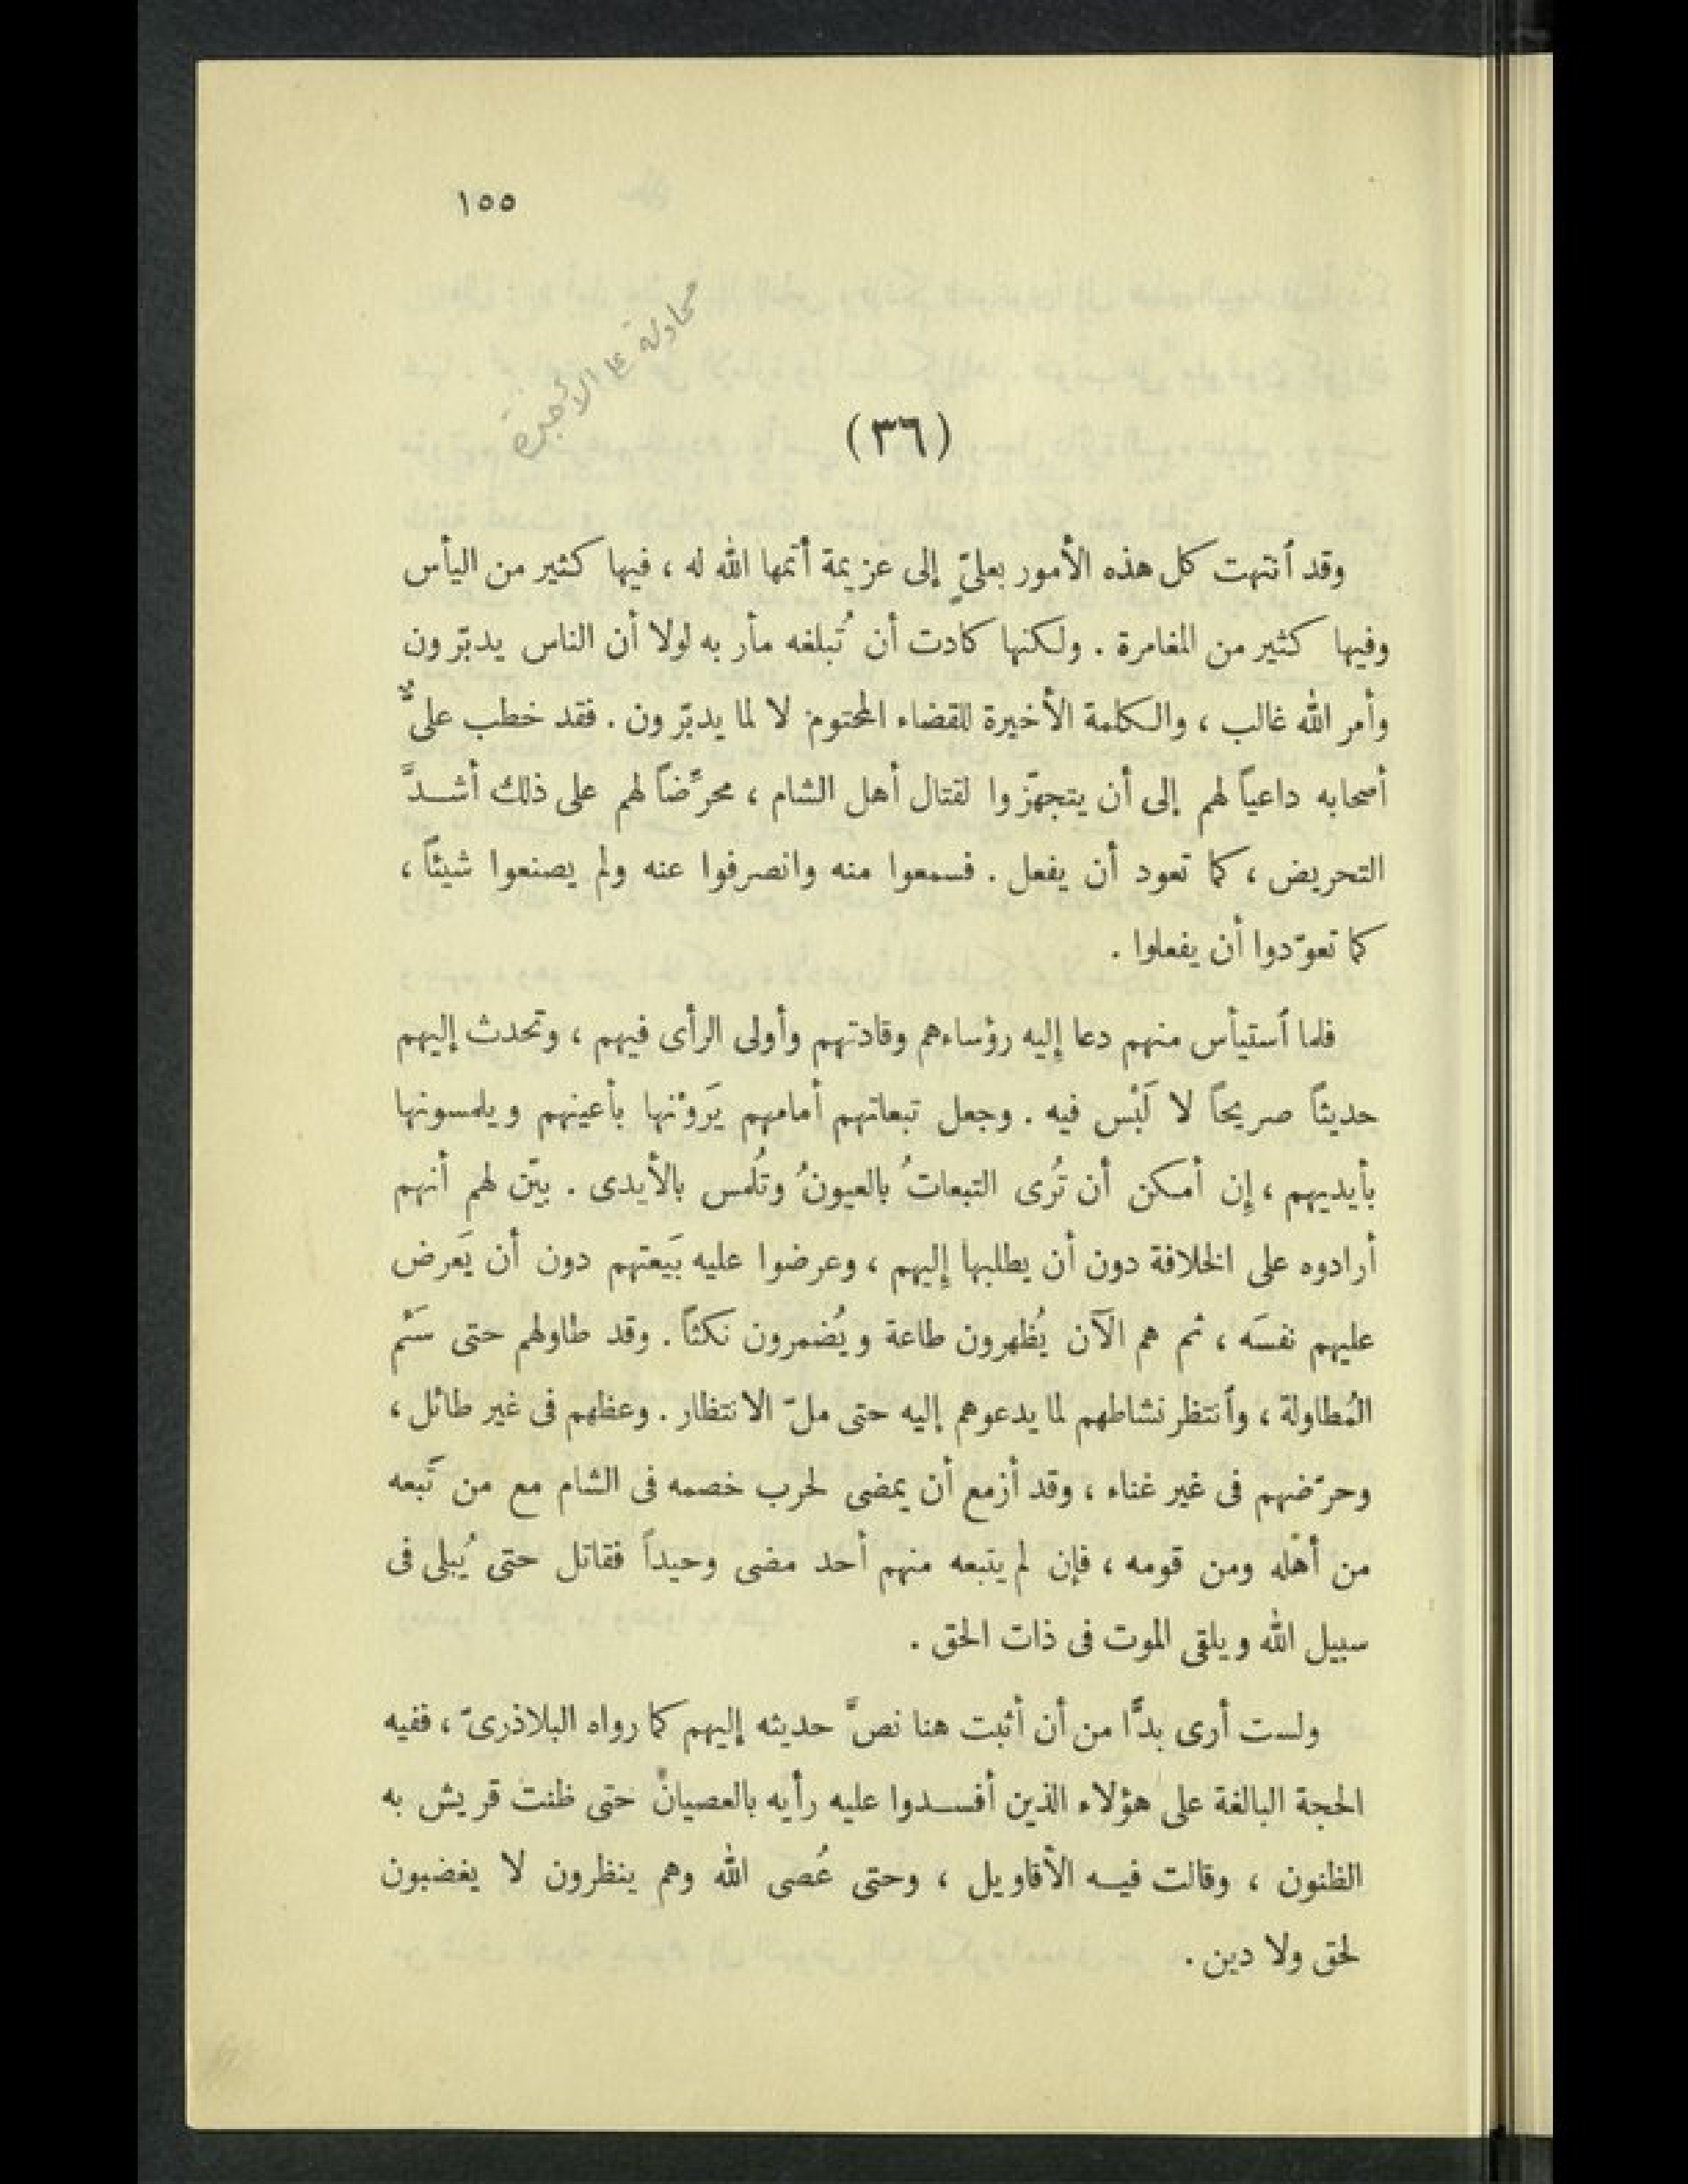 ١٥٥
محاولة على الأخيرة
(٣٦)
وقد ٱنتهت كل هذه الأمور بعلىٍّ إلى عزيمة أتمها الله له ، فيها كثير من اليأس
وفيها كثير من المغامرة . ولكنها كادت أن تُبلغه مأربه لولا أن الناس يدبّرون
وأمر الله غالب ، والكلمة الأخيرة للقضاء المحتوم لا لما يدبّرون . فقد خطب علىٌّ
أصحابه داعياً لهم إلى أن يتجهّزوا لقتال أهل الشام ، محرِّضاً لهم على ذلك أشدَّ
التحريض ، كما تعود أن يفعل . فسمعوا منه وانصرفوا عنه ولم يصنعوا شيئاً ،
كما تعوّدوا أن يفعلوا .
فلما ٱستيأس منهم دعا إليه رؤساءهم وقادتهم وأولى الرأى فيهم ، وتحدث إليهم
حديثاً صريحاً لا لَبْس فيه . وجعل تبعاتهم أمامهم يَروْنها بأعينهم ويلمسونها
بأيديهم ، إن أمكن أن تُرى التبعاتُ بالعيون وتُلمس بالأيدى . بيّن لهم أنهم
أرادوه على الخلافة دون أن يطلبها إليهم ، وعرضوا عليه بَيعتهم دون أن يَعرض
عليهم نفسَه ، ثم هم الآن يُظهرون طاعة ويُضمرون نكثاً . وقد طاولهم حتى سَئم
المُطاولة ، وٱنتظر نشاطهم لما يدعوهم إليه حتى ملّ الانتظار . وعظهم فى غير طائل ،
وحرّضهم فى غير غناء ، وقد أزمع أن يمضى لحرب خصمه فى الشام مع من تَبعه
من أهله ومن قومه ، فإن لم يتبعه منهم أحد مضى وحيداً فقاتل حتى يُبلى فى
سبيل الله ويلقى الموت فى ذات الحق .
ولست أرى بدًّا من أن أثبت هنا نصَّ حديثه إليهم كما رواه البلاذرىّ ، ففيه
الحجة البالغة على هؤلاء الذين أفسدوا عليه رأيه بالعصيان حتى ظنت قريش به
الظنون ، وقالت فيه الأقاويل ، وحتى عُصى الله وهم ينظرون لا يغضبون
لحق ولا دين .